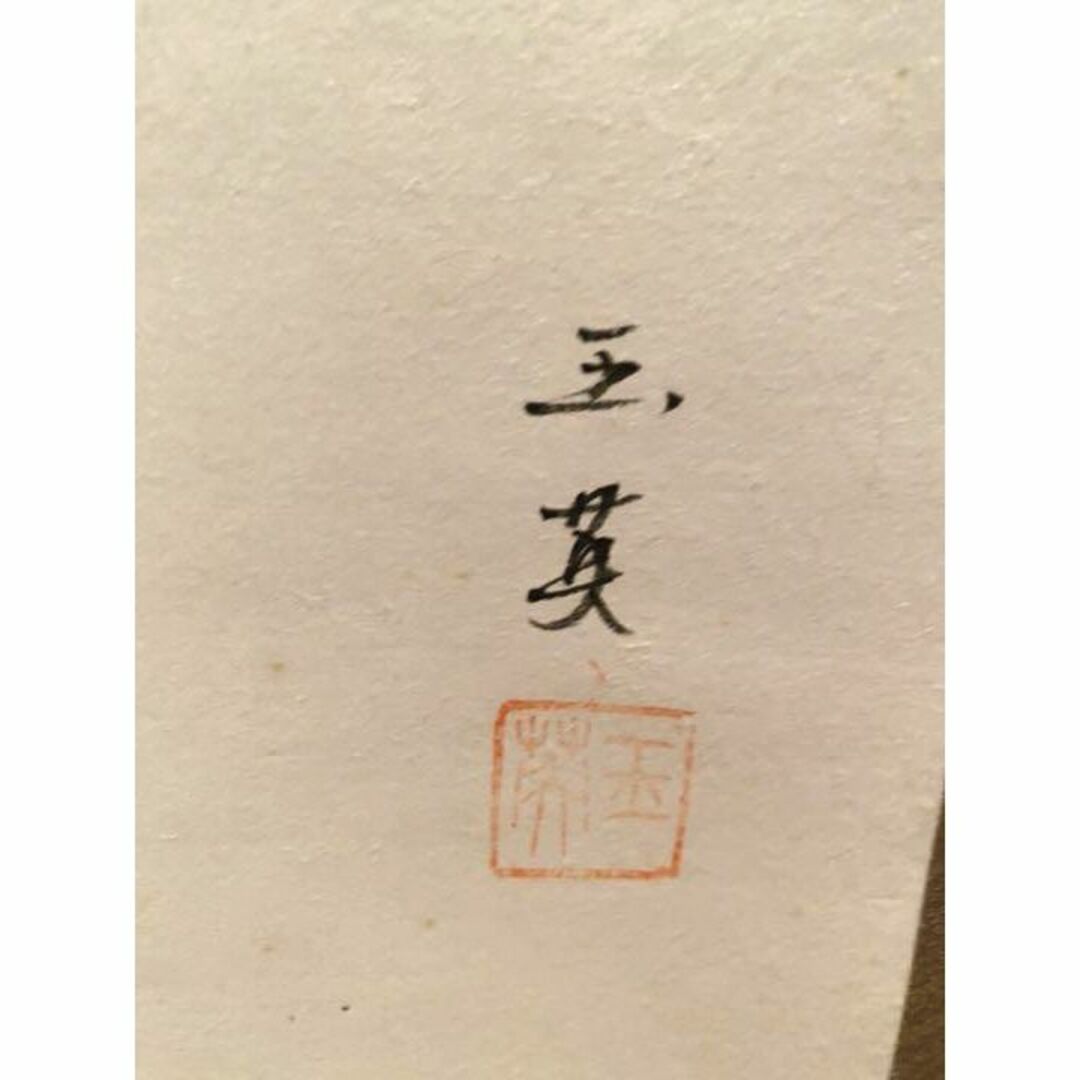 玉
英
玉英